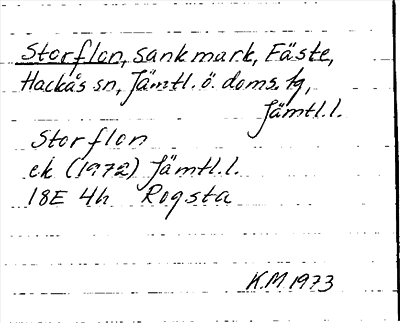 Storflon, sankmark, Fäste,
Hackås sn, Jämtl. ö. doms. lg,
Jämtl.l.
Storflon
ek (1972) Jämtl.l.
18E 4h Rogsta
K.M 1973